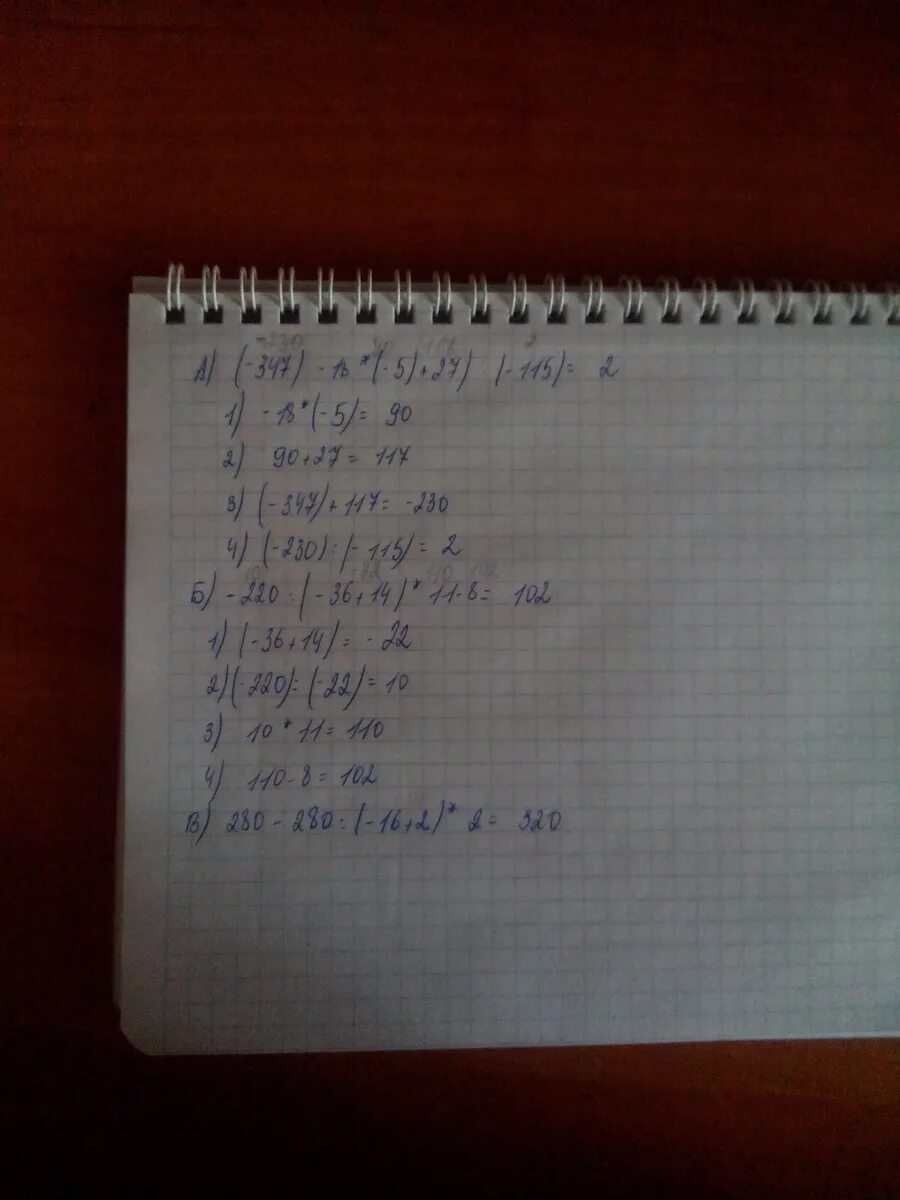 -230 90 117 2
А) (-347) - 18 * (-5) + 27) : (-115) = 2
1) -18 * (-5) = 90
2) 90 + 27 = 117
3) (-347) + 117 = -230
4) (-230) : (-115) = 2
10 -22 110 102
Б) - 220 : (-36 + 14) * 11 - 8 = 102
1) (-36 + 14) = - 22
2) (-220) : (-22) = 10
3) 10 * 11 = 110
4) 110 - 8 = 102
В) 280 - 280 : (-16 + 2) * 2 = 320